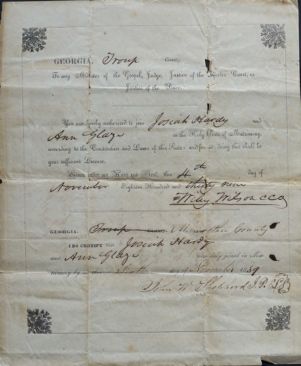 GEORGIA, Troup County.
To any Minister of the Gospel, Judge, Justice of the Inferior Court, or
Justice of the Peace.
You are hereby authorized to join Josiah Hardy and
Ann Glaze in the Holy State of Matrimony,
according to the Constitution and Laws of this State; and for so doing this shall be
your sufficient License.
Given under my Hand and Seal, this 4th day of
November Eighteen Hundred and thirty nine
Willey Wilson CCO
GEORGIA. Troup County
I DO CERTIFY that Josiah Hardy
and Ann Glaze were duly joined in Matrimony
by me this day of 1839
John W. J.P.